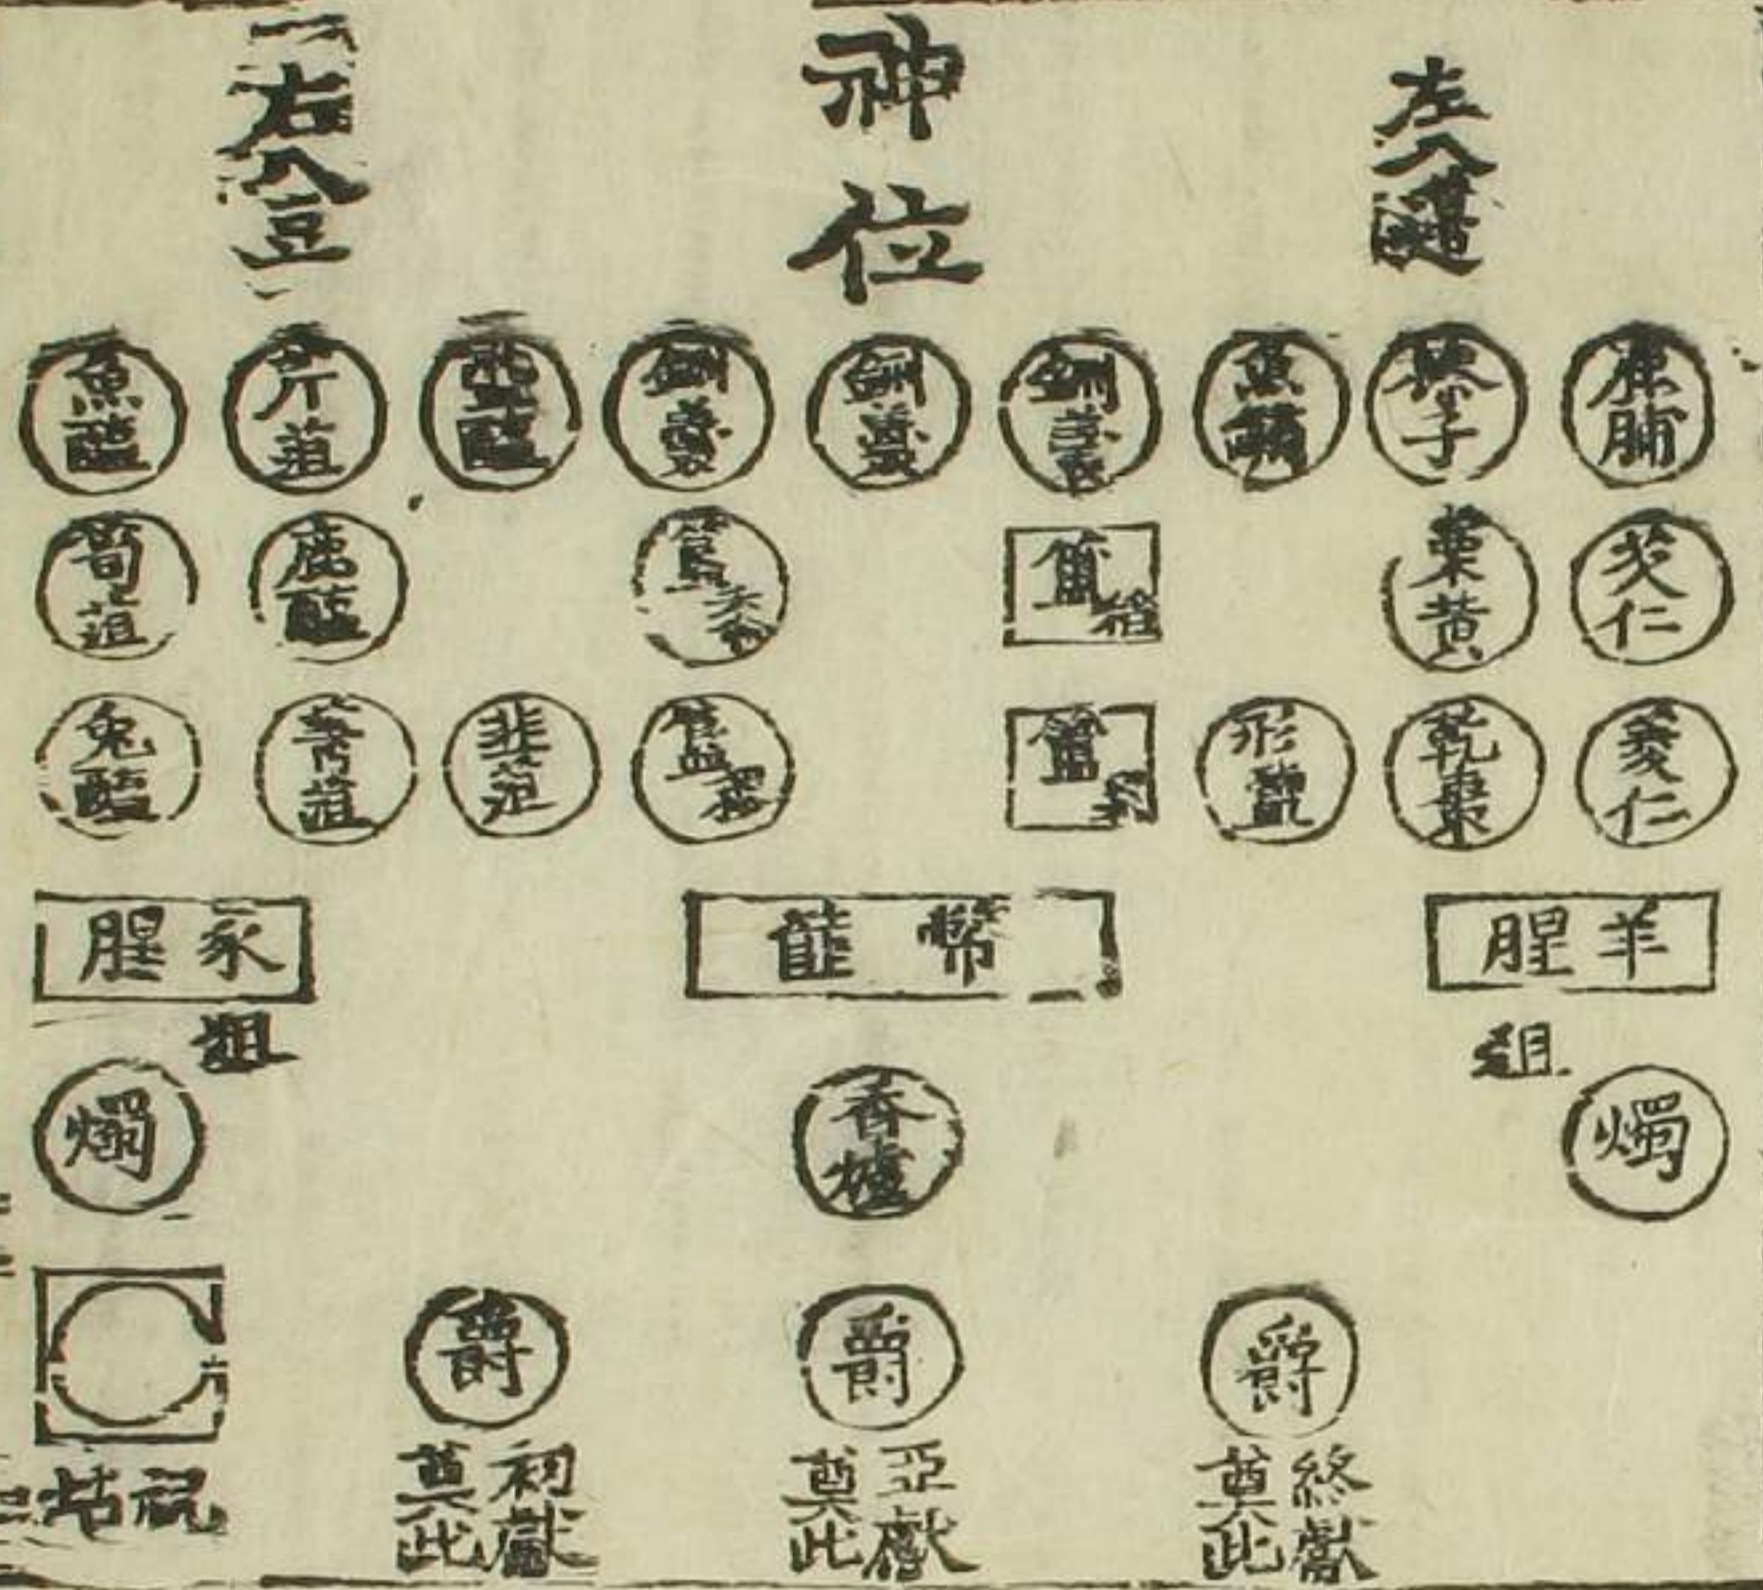 左八籩
神位
右八豆
鹿脯
榛子
魚鱐
鉶羹
鉶羹
鉶羹
醓醢
芹葅
魚醢
芡仁
栗黃
簠稻
簋黍
鹿醢
筍葅
菱仁
乾棗
形鹽
簠粱
簋稷
韭葅
菁葅
兔醢
羊腥
俎
幣篚
豕腥
俎
燭
香爐
燭
爵
終獻
奠此
爵
亞獻
奠此
爵
初獻
奠此
祝坫